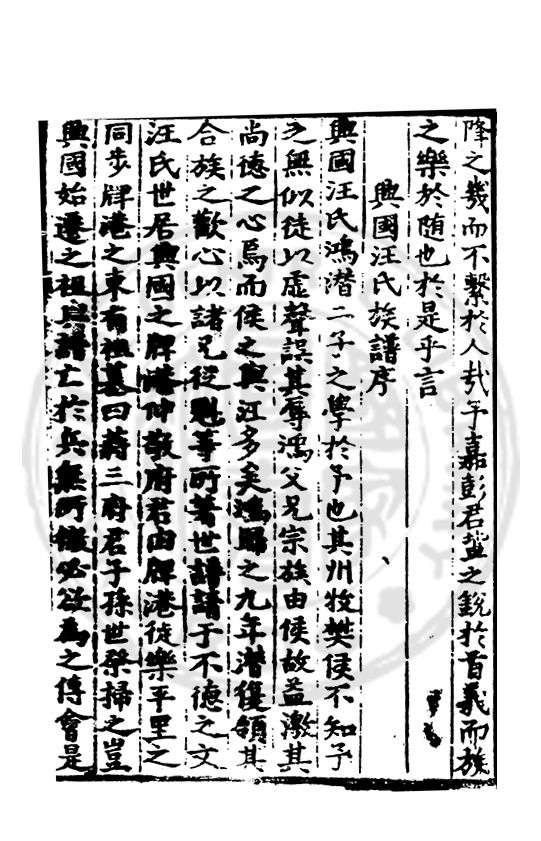 隆之幾而不繫於人哉乎嘉彭君蓝之銳於首義而族
之樂於随也於是乎言
興國汪氏族譜序
興國汪氏鴻潜二子之學於予也其州牧樊侯不知予
之無似徒以虚聲誤其辱鴻父兄宗族由侯故益激其
尚德之心焉而侯之與江多矣鴻歸之九年潜復領其
合族之歡心以諸兄從魁等所著世譜請于不德之文
汪氏世居興國之牌港仲敬府君由牌港徙樂平里之
同步牌港之東有祖墓曰蒋三府君子孫世祭掃之豈
興國始遷之祖與譜亡於兵無所徵必欲為之傅會是